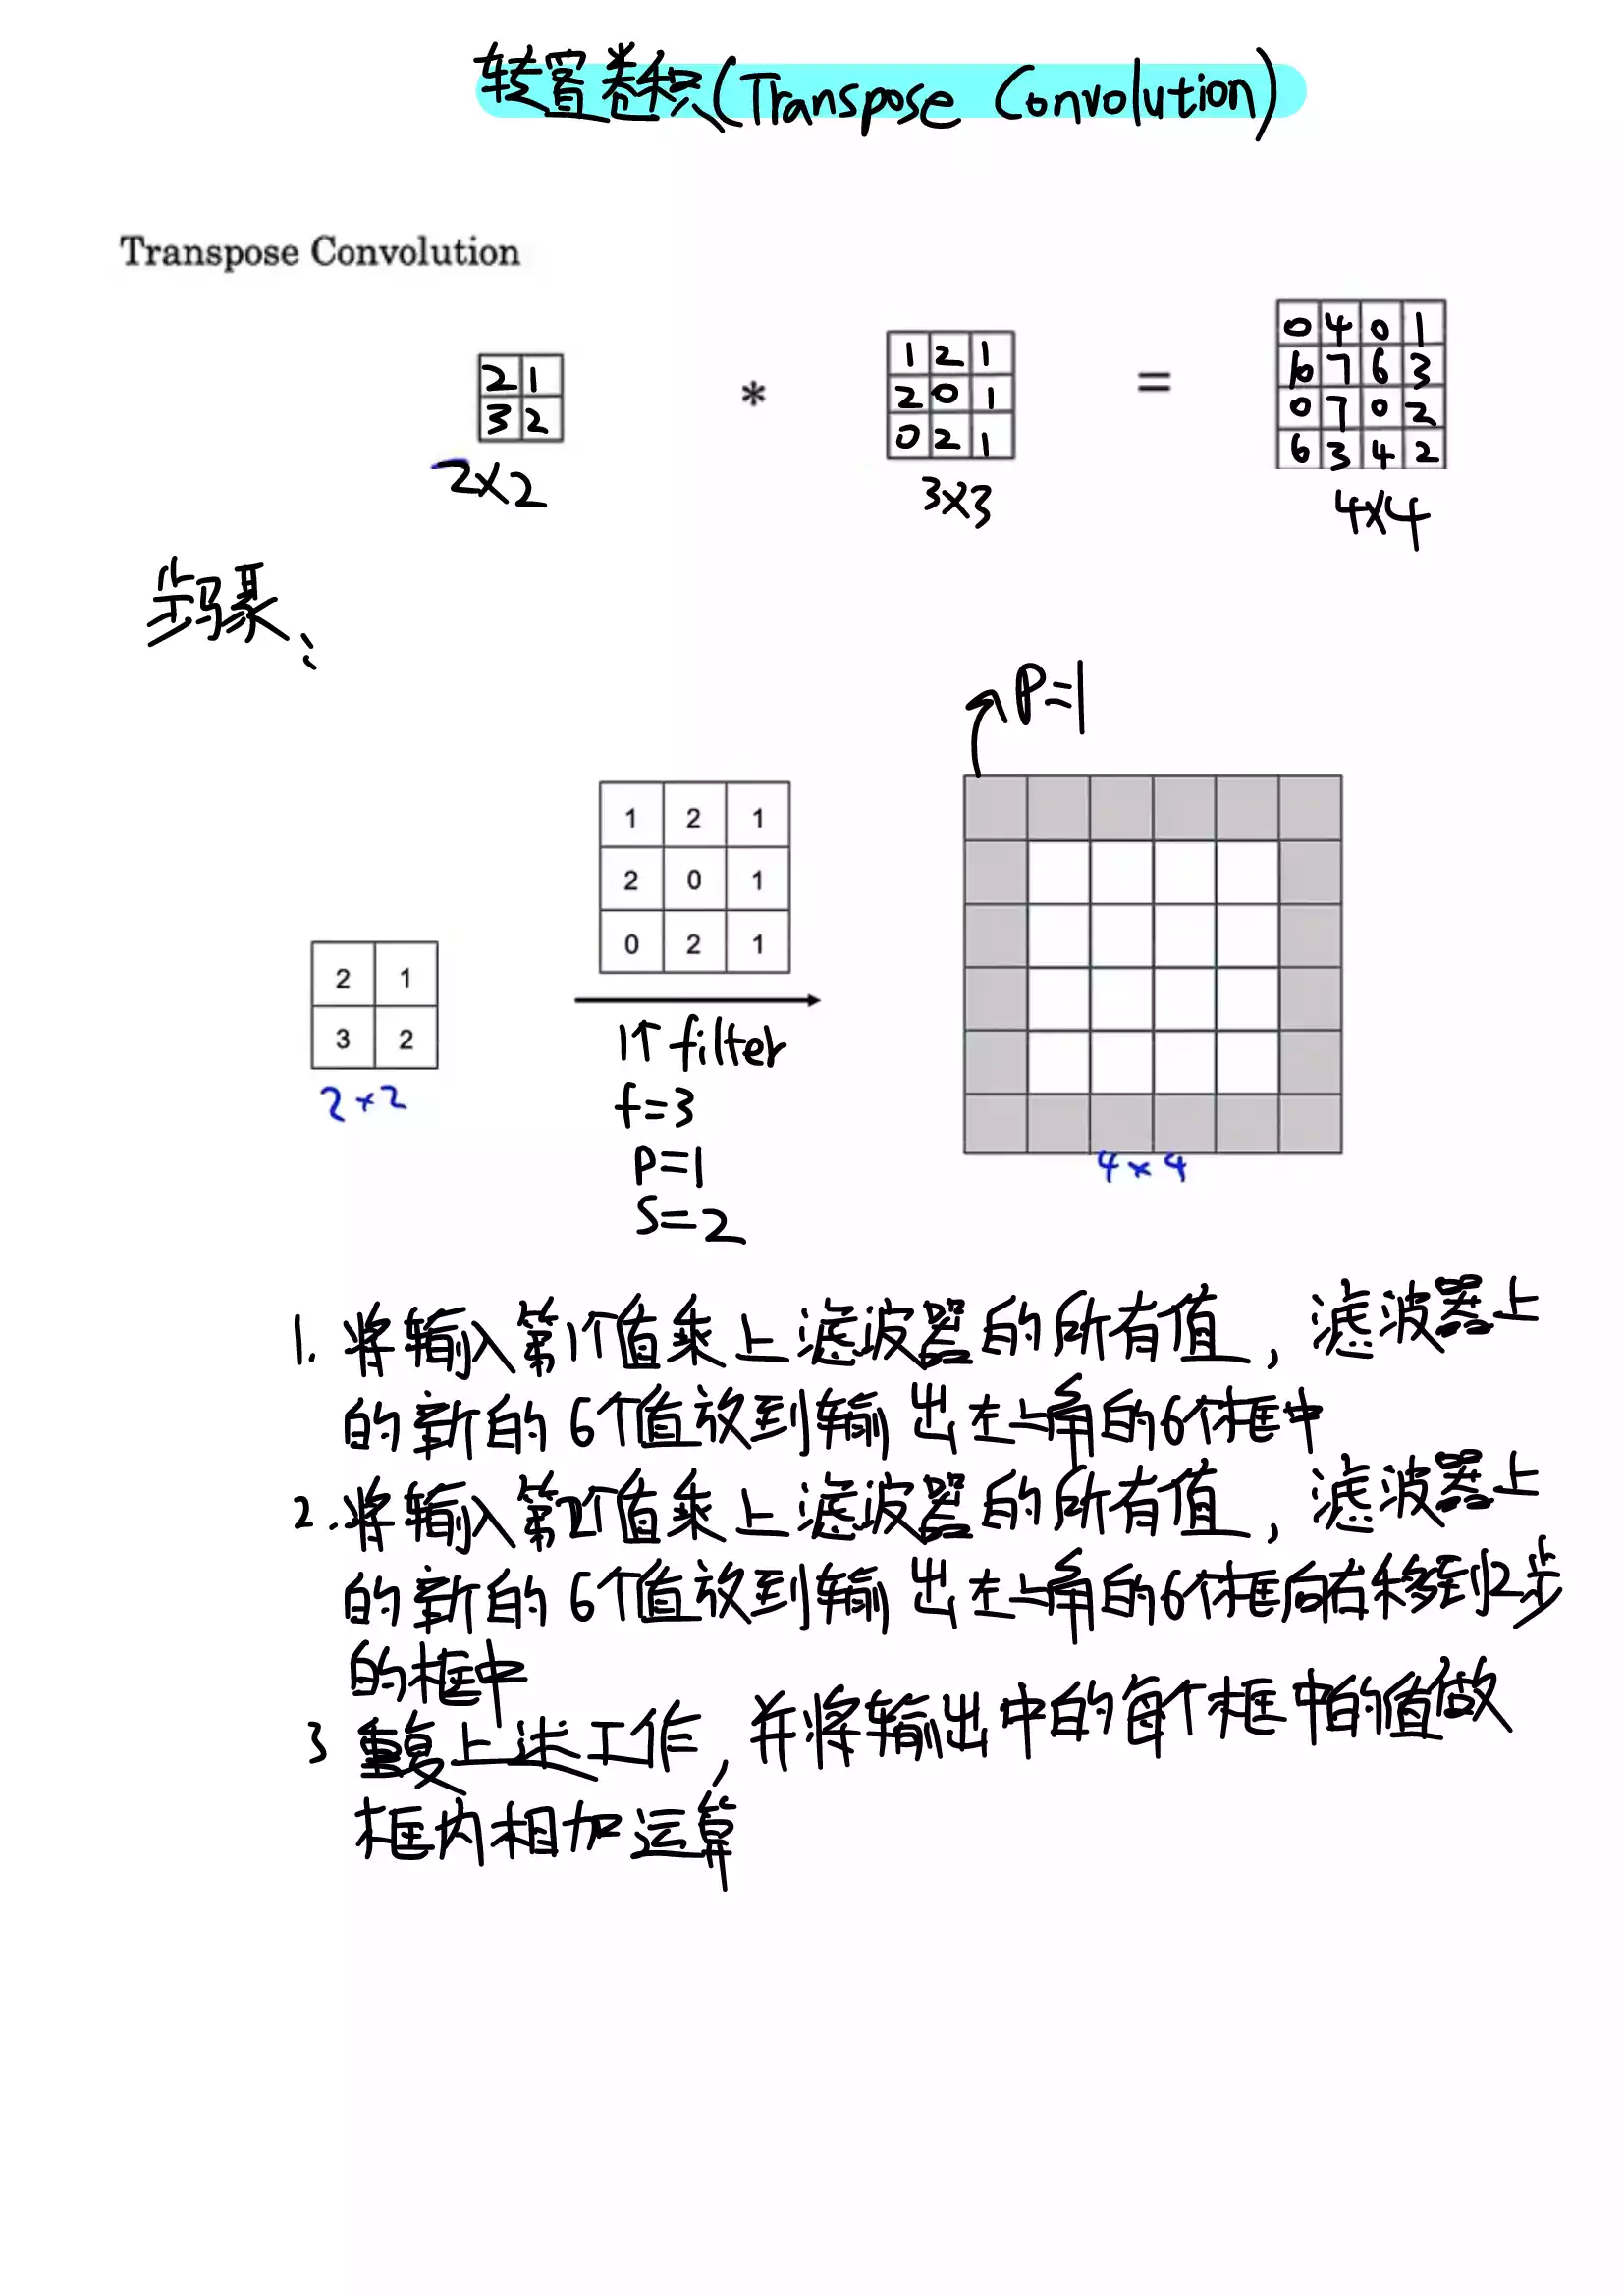 转置卷积(Transpose Convolution)
Transpose Convolution
2 1
3 2
2×2
*
1 2 1
2 0 1
0 2 1
3×3
=
0 4 0 1
10 7 6 3
0 7 0 2
6 3 4 2
4×4
步骤:
P=1
2 1
3 2
2×2
1 2 1
2 0 1
0 2 1
1个filter
f=3
P=1
S=2
4×4
1. 将输入第1个值乘上滤波器的所有值, 滤波器上
的新的6个值放到输出左上角的6个框中
2. 将输入第2个值乘上滤波器的所有值, 滤波器上
的新的6个值放到输出左上角的6个框向右移到2步
的框中
3 重复上述工作, 并将输出中的每个框中的值做
框内相加运算